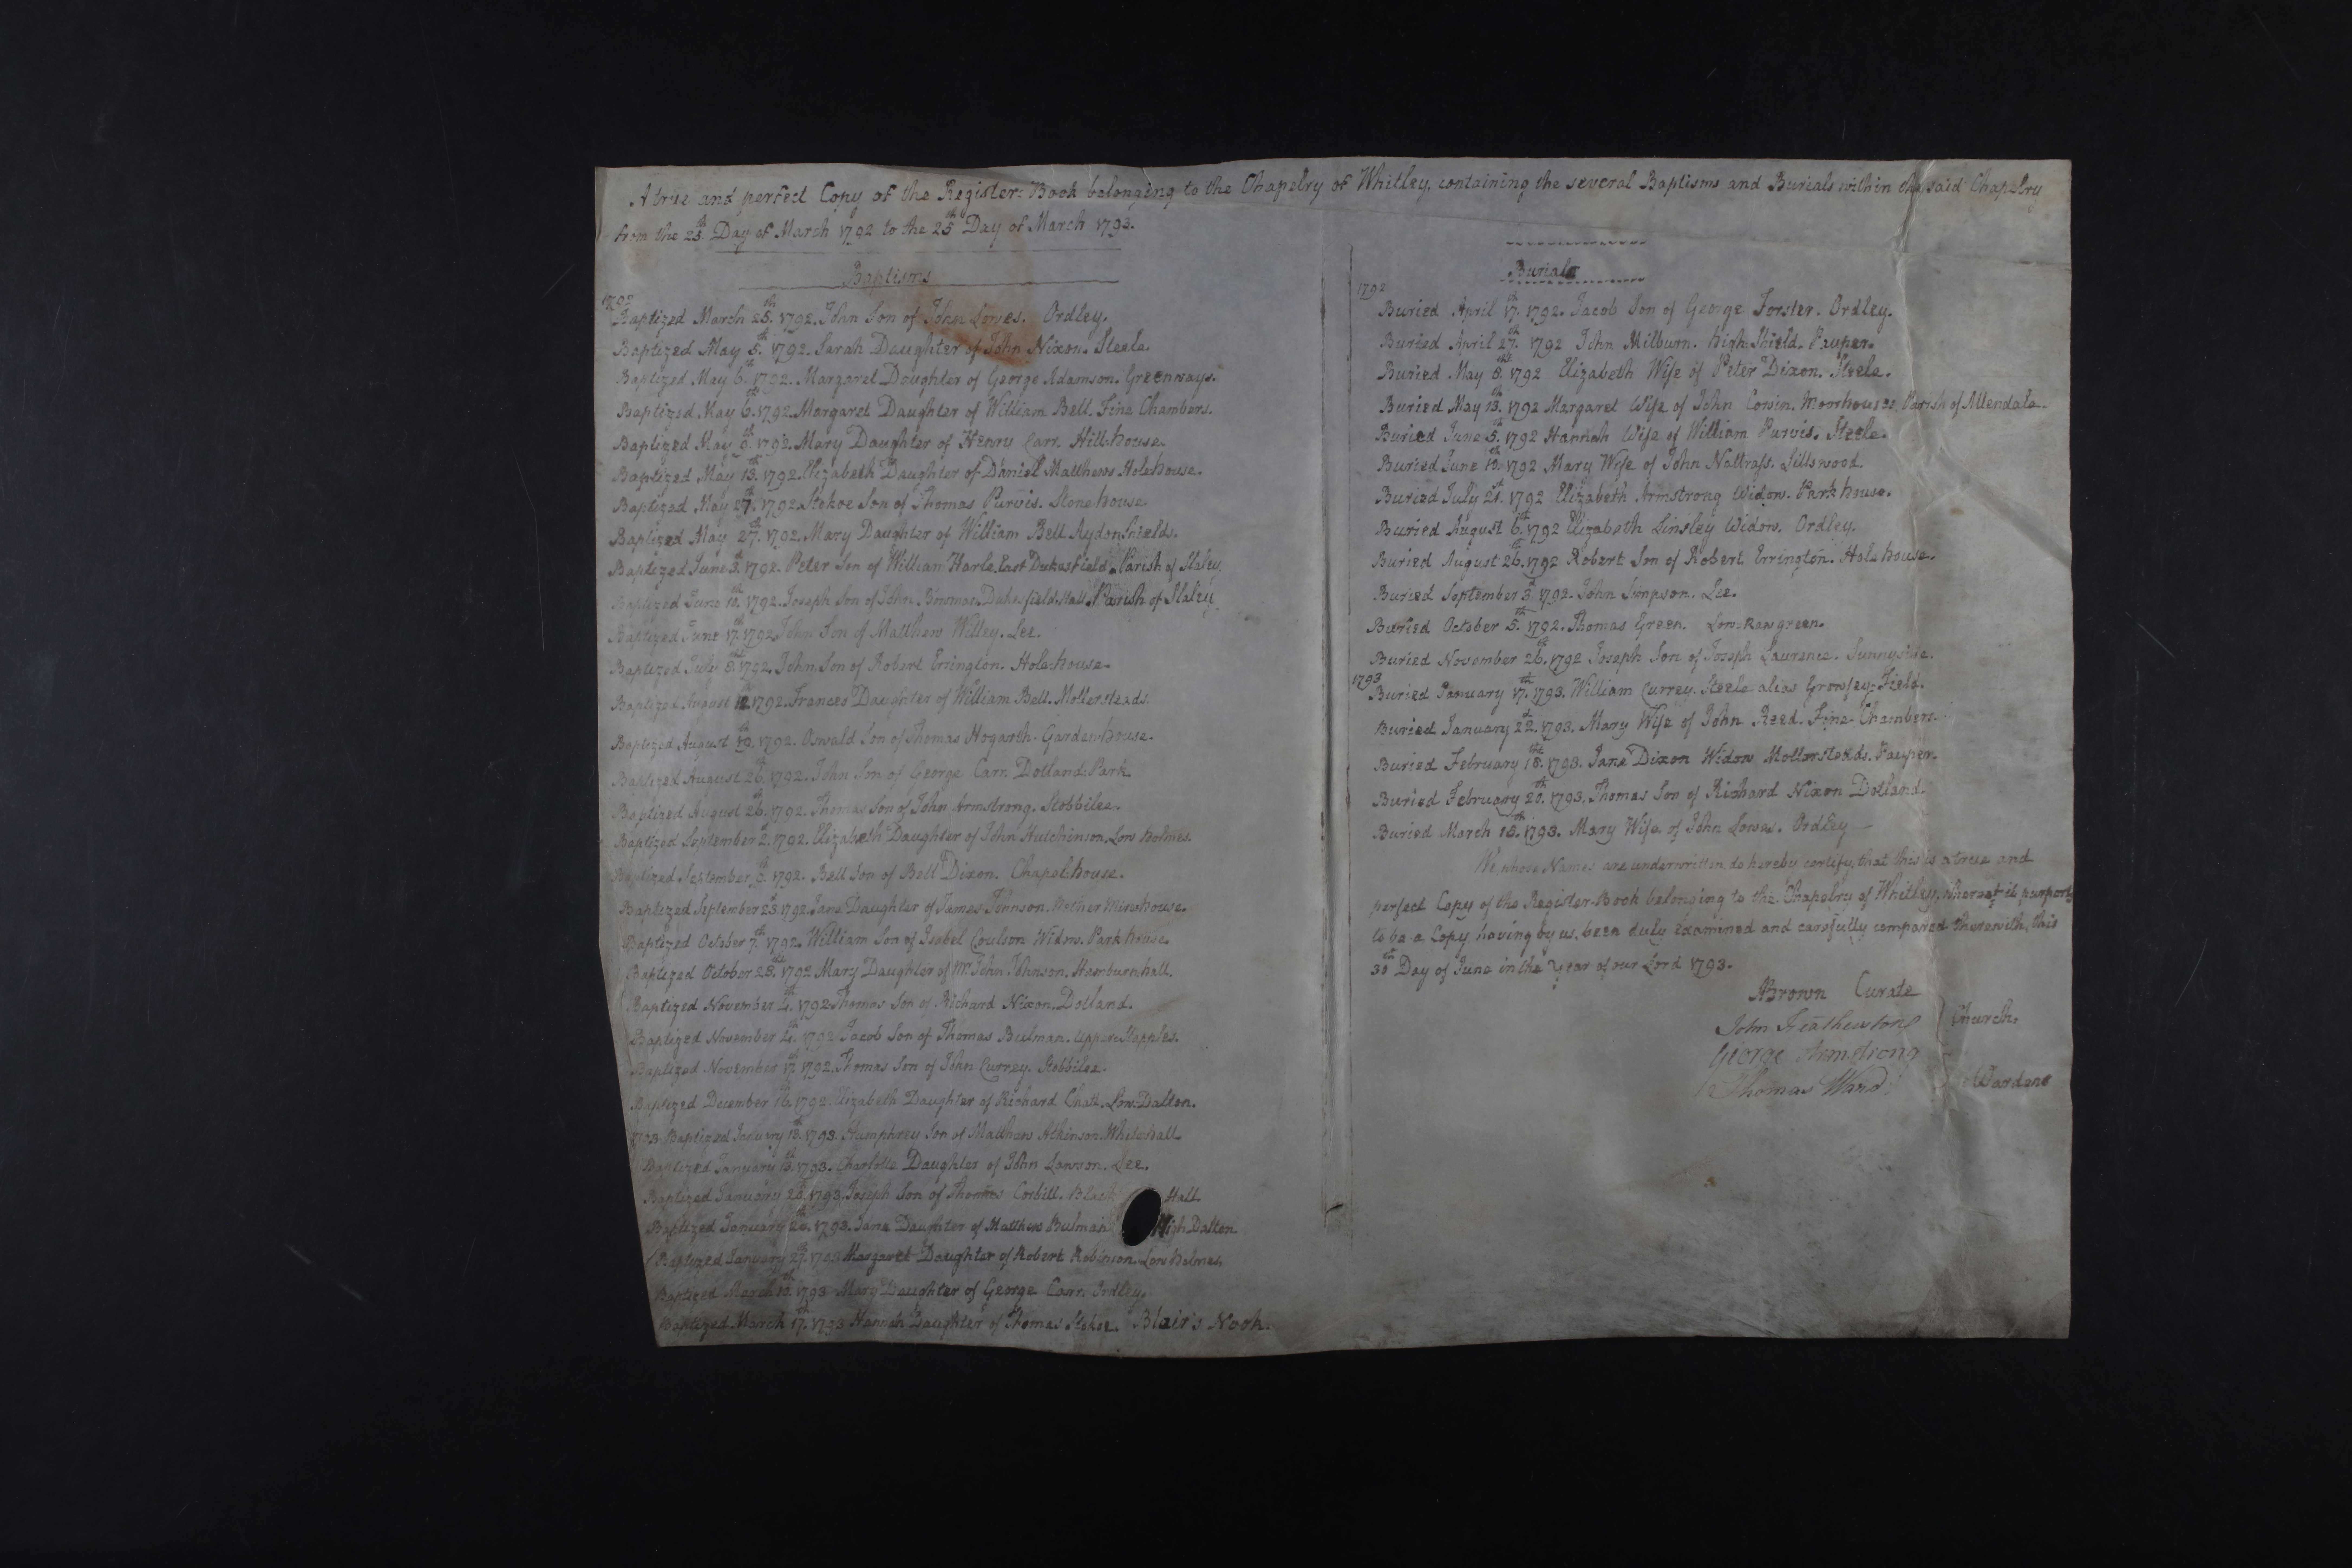 A true and perfect Copy of the Register-Book belonging to the Chapelry of Whitley, containing the several Baptisms and Burials within the said Chapelry
from the 25th Day of March 1792 to the 25th Day of March 1793.
Baptisms
1792
Baptized March 25th. 1792. John Son of John Lowes. Ordley.
Baptized May 5th. 1792. Sarah Daughter of John Nixon. Steele.
Baptized May 6th. 1792. Margaret Daughter of George Adamson. Greenways.
Baptized May 6th. 1792. Margaret Daughter of William Bell. Fine Chambers.
Baptized May 1792. Mary Daughter of Henry Carr. Hill-house.
Baptized May 13th. 1792. Elizabeth Daughter of Daniel Matthews Hole-house.
Baptized May 27th. 1792. Stokoe Son of Thomas Purvis. Stone house.
Baptized May 27th. 1792. Mary Daughter of William Bell Aydon Shields.
Baptized June 3d. 1792. Peter Son of William Harle. East Dukesfield. Parish of Slaley.
Baptized June 10th. 1792. Joseph Son of John Bowman. Dukesfield-Hall. Parish of Slaley
Baptized June 17th. 1792. John Son of Matthew Willey. Lee.
Baptized July 8th. 1792. John Son of Robert Errington. Hole-house.
Baptized August 12th. 1792. Frances Daughter of William Bell. Mollersteads.
Baptized August 19th. 1792. Oswald Son of Thomas Hogarth. Garden-house.
Baptized August 26th. 1792. John Son of George Carr. Dotland-Park.
Baptized August 26th. 1792. Thomas Son of John Armstrong. Stobbilee.
Baptized September 2d. 1792. Elizabeth Daughter of John Hutchinson. Low Holmes.
Baptized September 9th. 1792. Bell Son of Bell Dixon. Chapel-house.
Baptized September 23d. 1792. Jane Daughter of James Johnson. Nether Mirehouse.
Baptized October 7th. 1792. William Son of Isabel Coulson Widow. Park house.
Baptized October 28th. 1792 Mary Daughter of Mr. John Johnson. Hamburnhall.
Baptized November 4th. 1792. Thomas Son of Richard Nixon. Dotland.
Baptized November 4th. 1792. Jacob Son of Thomas Bulman. Upper-Stapples.
Baptized November 17th. 1792. Thomas Son of John Currey. Stobbilee.
Baptized December 16th. 1792. Elizabeth Daughter of Richard Chatt. Low-Dalton.
1793 Baptized January 13th. 1793. Humphrey Son of Matthew Atkinson Whitehall.
Baptized January 13th. 1793. Charlotte Daughter of John Lawson. Lee.
Baptized January 20th. 1793. Joseph Son of Thomas Corbitt. Black Hall.
Baptized January 20th. 1793. Jane Daughter of Matthew Bulman High Dalton
Baptized January 27th. 1793 Margaret Daughter of Robert Robinson. Low Holmes.
Baptized March 10th. 1793 Mary Daughter of George Carr. Ordley.
Baptized March 17th. 1793 Hannah Daughter of Thomas Stokoe. Blair's Nook.
Burials
1792
Buried April 17th. 1792. Jacob Son of George Forster. Ordley.
Buried April 27th. 1792 John Milburn. High-Shield. Pauper.
Buried May 8th. 1792 Elizabeth Wife of Peter Dixon. Steele.
Buried May 13th. 1792 Margaret Wife of John Corvin. Morrhouses Parish of Allendale.
Buried June 5th. 1792 Hannah Wife of William Purvis. Steele.
Buried June 13th. 1792 Mary Wife of John Nattrass. Lillswood.
Buried July 21st. 1792 Elizabeth Armstrong Widow. Park house.
Buried August 6th. 1792 Elizabeth Linsley Widow. Ordley.
Buried August 26th. 1792 Robert Son of Robert Errington. Hole house.
Buried September 3d. 1792. John Simpson. Lee.
Buried October 5th. 1792. Thomas Green. Low-Raw green.
Buried November 26th. 1792 Joseph Son of Joseph Laurence. Sunnyside.
1793
Buried January 17th. 1793. William Currey. Steele alias Growsey-Field.
Buried January 22d. 1793. Mary Wife of John Reed. Fine-Chambers.
Buried February 18th. 1793. Jane Dixon Widow Mollersteads. Pauper.
Buried February 20th. 1793. Thomas Son of Richard Nixon Dotland.
Buried March 18th. 1793. Mary Wife of John Lowes. Ordley
We whose Names are underwritten do hereby certify, that this is a true and
perfect Copy of the Register-Book belonging to the Chapelry of Whitley, whereof it purports
to be a Copy, having by us, been duly examined and carefully compared therewith, this
30th Day of June in the Year of our Lord 1793.
ABrown Curate
John Featherstone Church.
George Armstrong
Thomas Ward Wardens